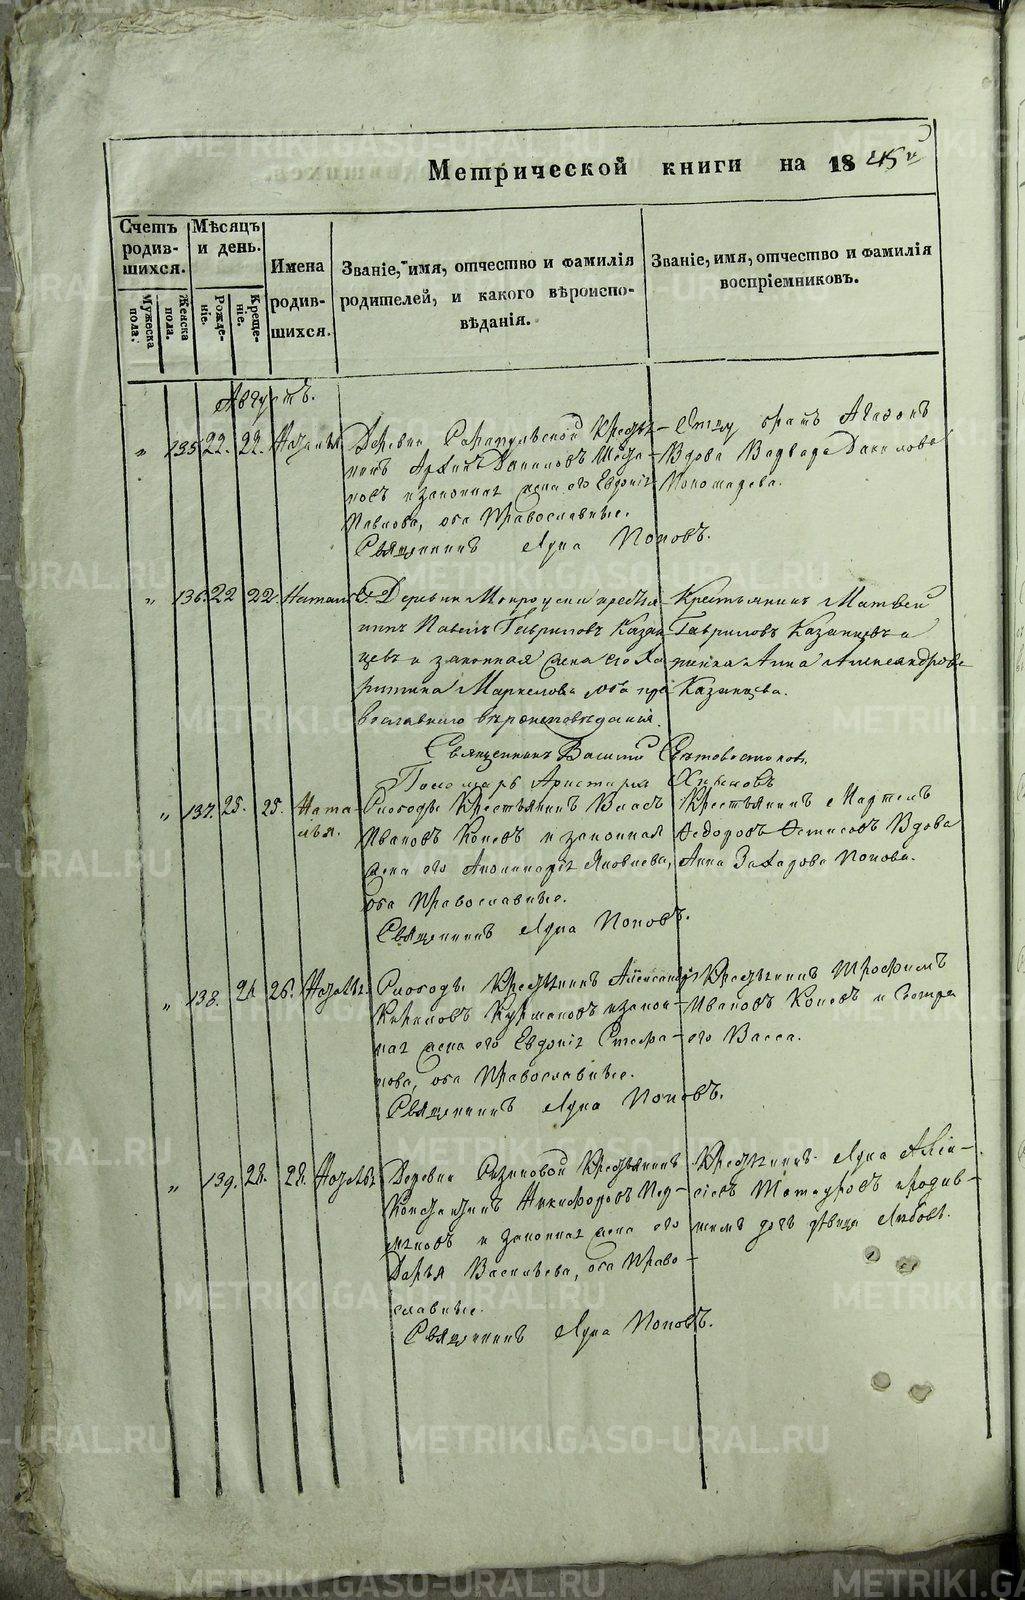 Метрической книги на 1845 й
Счетъ родив-шихся.
Мужеска пола.
Женска пола.
Мѣсяцъ и день.
Рожде-ніе.
Креще-ніе.
Имена родив-шихся.
Званіе, имя, отчество и фамилія
родителей, и какого вѣроиспо-
вѣданія.
Званіе, имя, отчество и фамилія
воспріемниковъ.
Августъ.
„ 135. 22. 22. Наталья
Деревни Сарапульской Крестья-
нинъ Архипъ Даниловъ
новъ и законная жена его Евдокія
Павлова, оба Православные.
Священникъ Лука Поповъ.
братъ Агафонъ
Вдова Варвара Данилова
Пономарева.
„ 136. 22 22. Наталія
Деревни Мокроуски крестья-
нинъ Павелъ Гавриловъ Казан-
цевъ и законная жена его Ка-
ритина Маркелова оба пра-
вославнаго вѣроисповѣданія.
Священникъ Василій
Пономарь Аристархъ
Крестьянинъ Матвей
Гавриловъ Казанцевъ и
Анна Александрова
Казанцева.
„ 137. 25. 25. Ната-
лья.
Слободы Крестьянинъ Власъ
Ивановъ Коневъ и законная
жена его Аполинарія Яковлева,
оба Православные.
Священникъ Лука Поповъ.
Крестьянинъ
Федоровъ Вдова
Анна Захарова Попова.
„ 138. 26. 26. Наталья.
Слободы Крестьянинъ Александръ
Кириловъ и закон-
ная жена его Евдокія Степа-
нова, оба Православные.
Священникъ Лука Поповъ.
Крестьянинъ Трофимъ
Ивановъ Коневъ и сестра
его Васса.
„ 139. 28. 28. Наталья
Деревни Крестьянинъ
Константинъ Никифоровъ
и законная жена его
Дарья Васильева, оба Право-
славные.
Священникъ Лука Поповъ.
Крестьянинъ Лука Алек-
дочь дѣвица Любовь.
METRIKI.GASO-URAL.RU